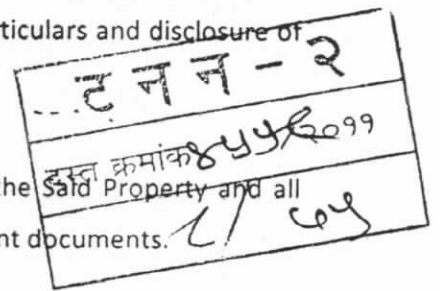 ticulars and disclosure of
ट न न - २
दस्त क्रमांक २०११
the Said Property and all
nt documents.